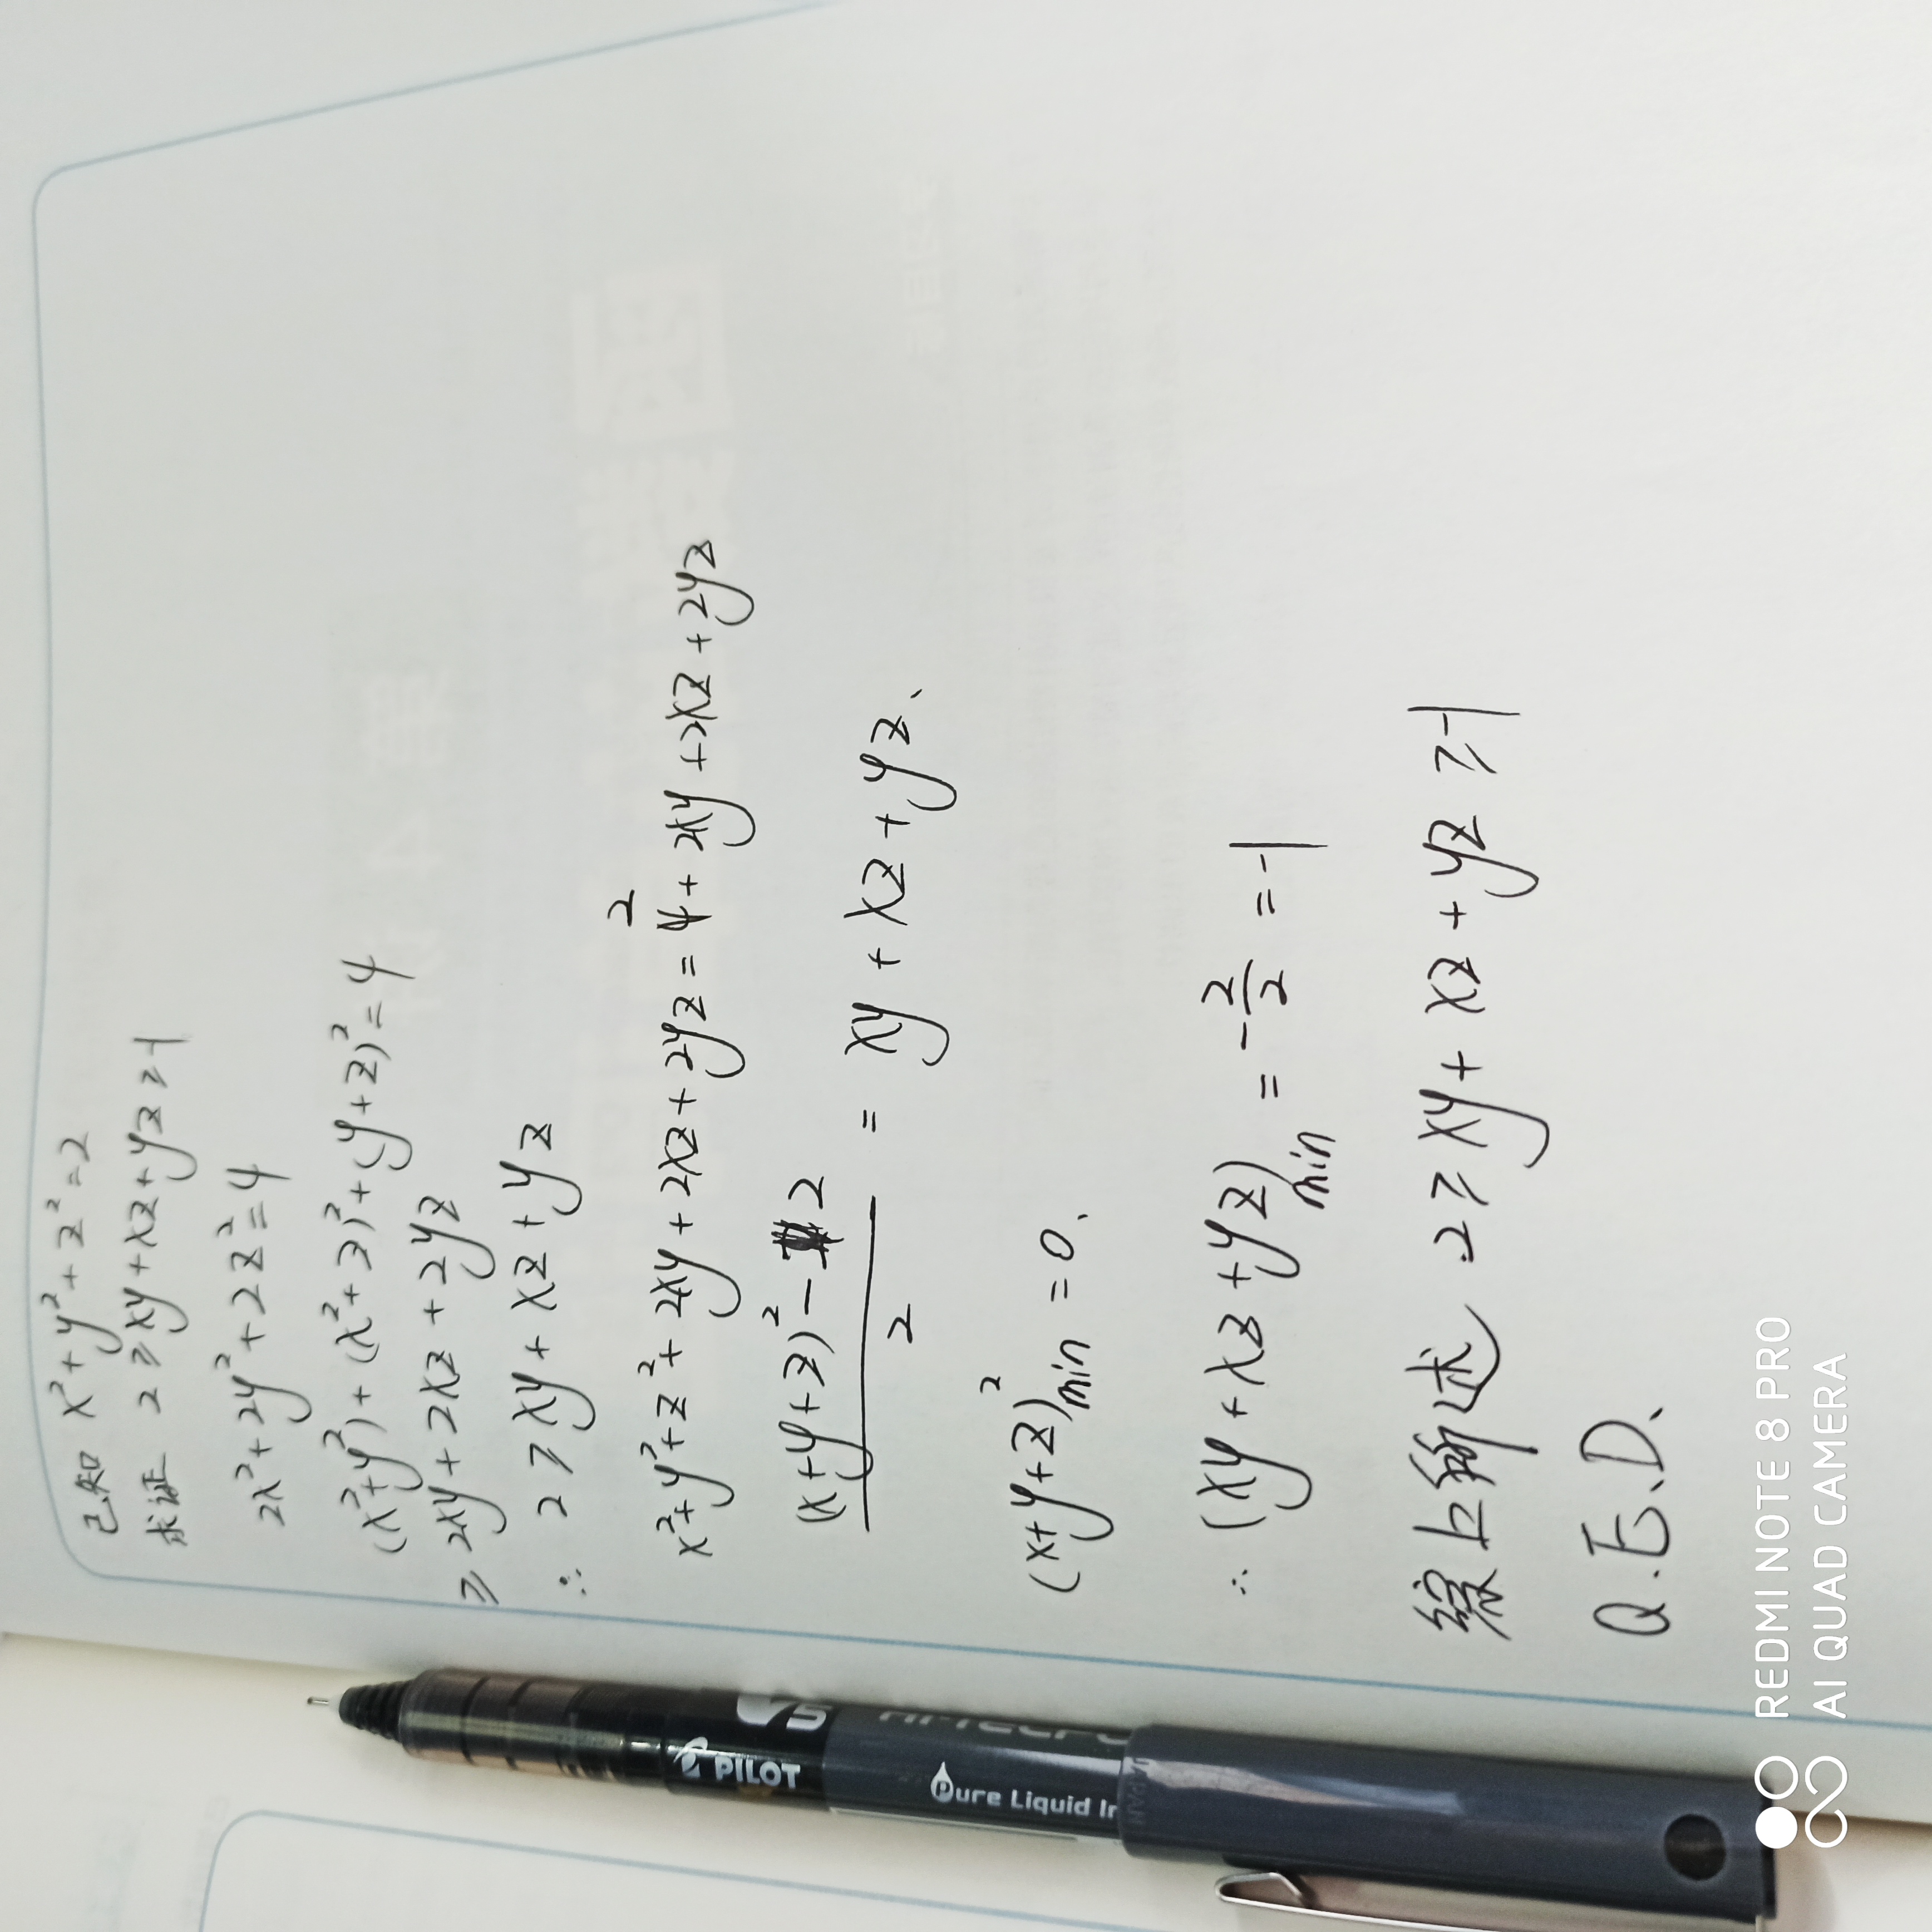 已知 x²+y²+z²=2
求证 2≥xy+xz+yz≥-1
2x²+2y²+2z²=4
(x²+y²)+(x²+z)²+(y+z)²=4
≥2xy+2xz+2yz
∴ 2≥xy+xz+yz
x²+y²+z²+2xy+2xz+2yz=2+2xy+2xz+2yz
((x+y+z)²-2)/2 = xy+xz+yz.
(x+y+z)²min=0.
∴ (xy+xz+yz)min = -2/2 = -1
综上所述 2≥xy+xz+yz≥-1
Q.E.D.
PILOT
V5
Pure Liquid In
JAPAN
REDMI NOTE 8 PRO
AI QUAD CAMERA